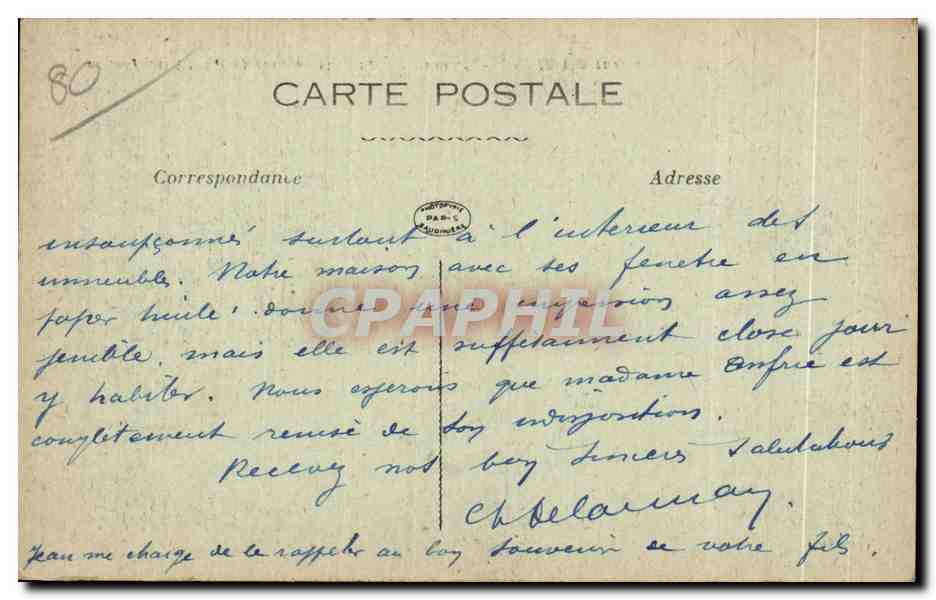 80
CARTE POSTALE
Correspondance
Adresse
PHOTOTYPIE
PARIS
BAUDINIÈRE
insoupçonnés surtout à l'interieur des
immeubles. Notre maison avec ses fenetre en
papier huilé, donne une impression assez
penible, mais elle est suffisamment close pour
y habiter. Nous esperons que madame Enfrie est
complètement remise de son indisposition.
Recevez nos bons sincères salutations
Ch Delaunay.
Jean me charge de le rappeler au bon souvenir de votre fils.
CPAPHIL